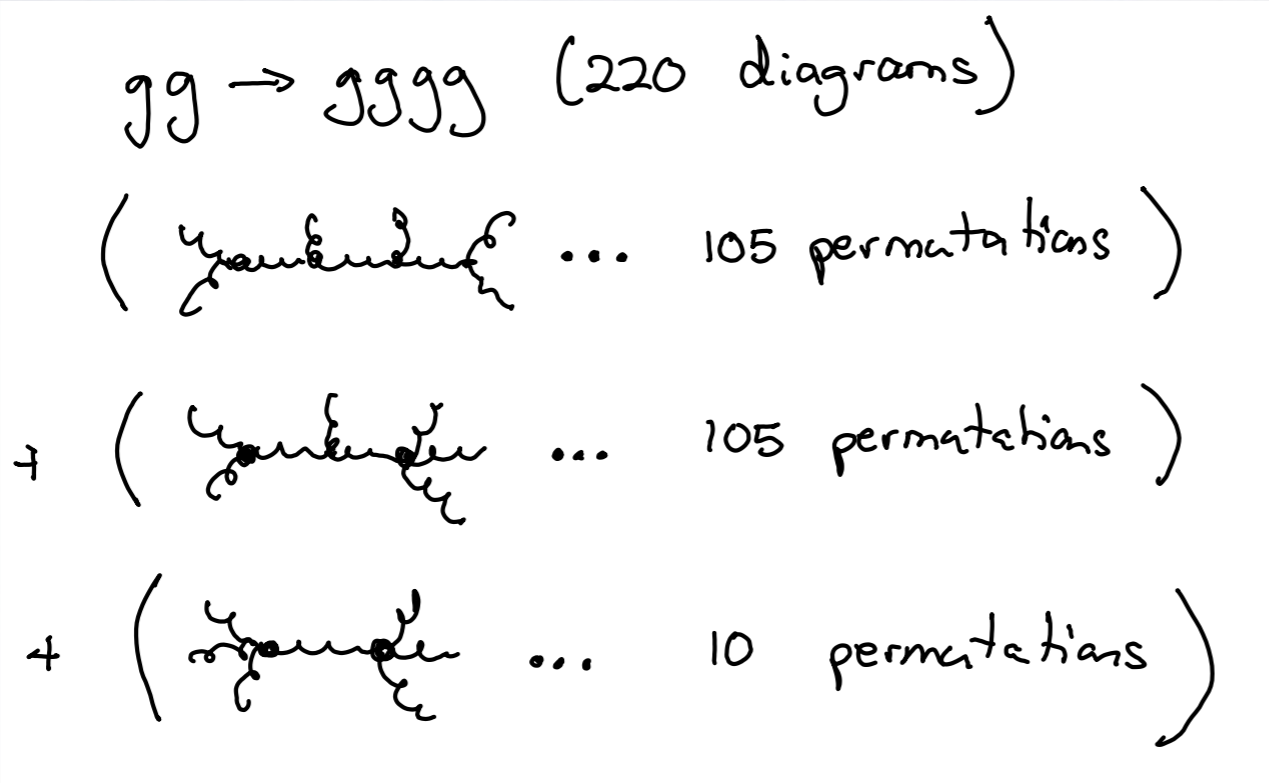 gg → gggg (220 diagrams)
( ... 105 permutations )
+ ( ... 105 permutations )
+ ( ... 10 permutations )